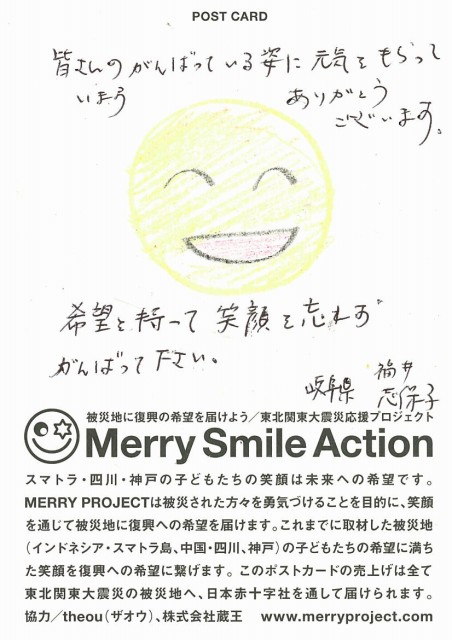 POST CARD
皆さんのがんばっている姿に元気をもらって
います
ありがとう
ございます。
希望を持って笑顔を忘れず
がんばって下さい。
岐阜県 福井
志保子
被災地に復興の希望を届けよう／東北関東大震災応援プロジェクト
Merry Smile Action
スマトラ・四川・神戸の子どもたちの笑顔は未来への希望です。
MERRY PROJECTは被災された方々を勇気づけることを目的に、笑顔
を通じて被災地に復興への希望を届けます。これまでに取材した被災地
（インドネシア・スマトラ島、中国・四川、神戸）の子どもたちの希望に満ち
た笑顔を復興への希望に繋げます。このポストカードの売上げは全て
東北関東大震災の被災地へ、日本赤十字社を通して届けられます。
協力／theou（ザオウ）、株式会社蔵王 www.merryproject.com